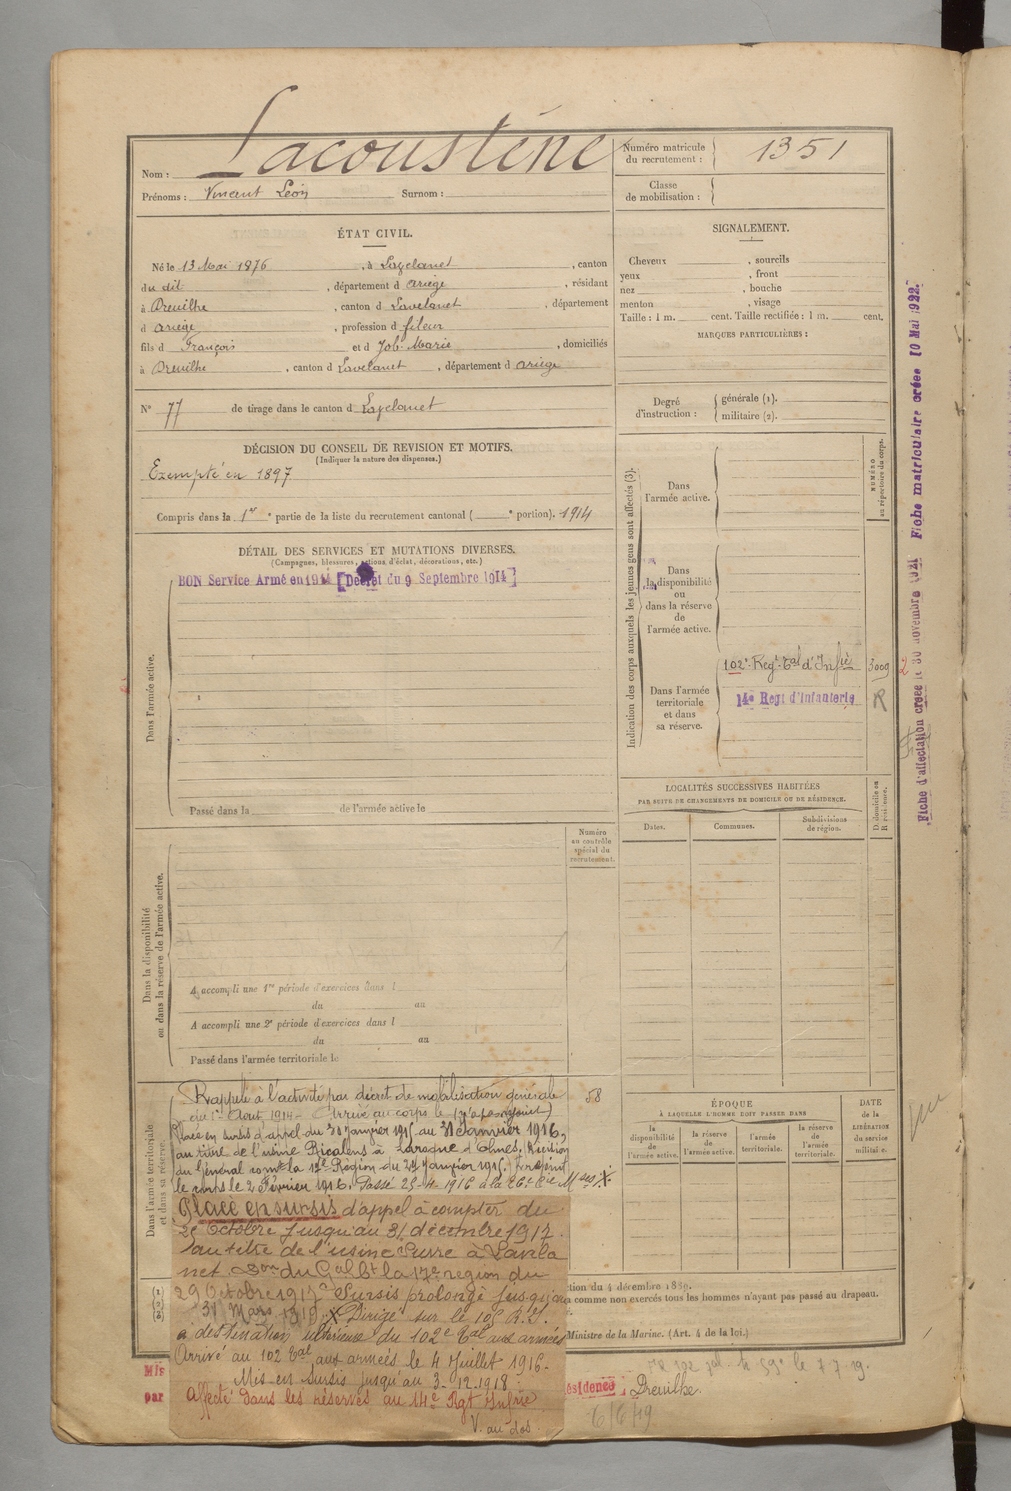 Nom : Lacousténe
Prénoms : Vincent Léon Surnom :
Numéro matricule du recrutement : 1351
Classe de mobilisation :
ÉTAT CIVIL.
Né le 13 Mai 1876, à Lavelanet, canton
du dit, département d ariège, résidant
à Dreuilhe, canton d Lavelanet, département
d ariège, profession d fileur
fils d François et d Job Marie, domiciliés
à Dreuilhe, canton d Lavelanet, département d ariège
N° 77 de tirage dans le canton d Lavelanet
SIGNALEMENT.
Cheveux , sourcils
yeux , front
nez , bouche
menton , visage
Taille : 1 m. cent. Taille rectifiée : 1 m. cent.
MARQUES PARTICULIÈRES :
Degré d'instruction : générale (1).
militaire (2).
DÉCISION DU CONSEIL DE REVISION ET MOTIFS.
(Indiquer la nature des dispenses.)
Exempté en 1897
Compris dans la 1re partie de la liste du recrutement cantonal ( e portion). 1914
DÉTAIL DES SERVICES ET MUTATIONS DIVERSES.
(Campagnes, blessures, actions d'éclat, décorations, etc.)
BON Service Armé en 1914 [Décret du 9 Septembre 1914]
Dans l'armée active.
Passé dans la de l'armée active le
Numéro au contrôle spécial du recrutement.
Dans la disponibilité ou dans la réserve de l'armée active.
A accompli une 1re période d'exercices dans l
du au
A accompli une 2e période d'exercices dans l
du au
Passé dans l'armée territoriale le
Indication des corps auxquels les jeunes gens sont affectés (3).
NUMÉRO au répertoire du corps.
Dans l'armée active.
Dans la disponibilité ou dans la réserve de l'armée active.
Dans l'armée territoriale et dans sa réserve.
102e Regt Tal d'Infie 3009
14e Regt d'Infanterie R
LOCALITÉS SUCCESSIVES HABITÉES
PAR SUITE DE CHANGEMENTS DE DOMICILE OU DE RÉSIDENCE.
Dates. Communes. Subdivisions de région. D. domicile ou R. résidence.
ÉPOQUE
À LAQUELLE L'HOMME DOIT PASSER DANS
la disponibilité de l'armée active. la réserve de l'armée active. l'armée territoriale. la réserve de l'armée territoriale.
DATE de la LIBÉRATION du service militaire.
Dans l'armée territoriale et dans sa réserve.
58
Rappelé à l'activité par décret de mobilisation générale
du 1er Aout 1914 - Arrivé au corps le
Placé en sursis d'appel du 31 Janvier 1915 au 31 Janvier 1916,
au titre de l'usine Ricalens à Laroque d'Olmes, Décision
du Général comt la 17e Région du 24 Janvier 1915. Rejoint
le corps le 2 Février 1916. Passé 25-4-1916 à la
Placé en sursis d'appel à compter du
2e Octobre jusqu'au 31 décembre 1917.
au titre de l'usine Surre à Lavela
net. Don du Gal Ct la 17e région du
29 Octobre 1917 Sursis prolongé jusqu'au
31 Mars 1918. X Dirigé sur le 10e R.I.
à destination ultérieure du 102e Tal aux armées
Arrivé au 102 Tal aux armées le 4 Juillet 1916.
Mis en sursis jusqu'au 3-12-1918
Affecté dans les réserves au 14e Rgt Infie
V. au dos
tion du 4 décembre 1889.
a comme non exercés tous les hommes n'ayant pas passé au drapeau.
Ministre de la Marine. (Art. 4 de la loi.)
Mis
par
ésidence, Dreuilhe
6/6/19
Fiche d'affectation créée le 30 novembre 1921 Fiche matriculaire créée 10 Mai 1922.